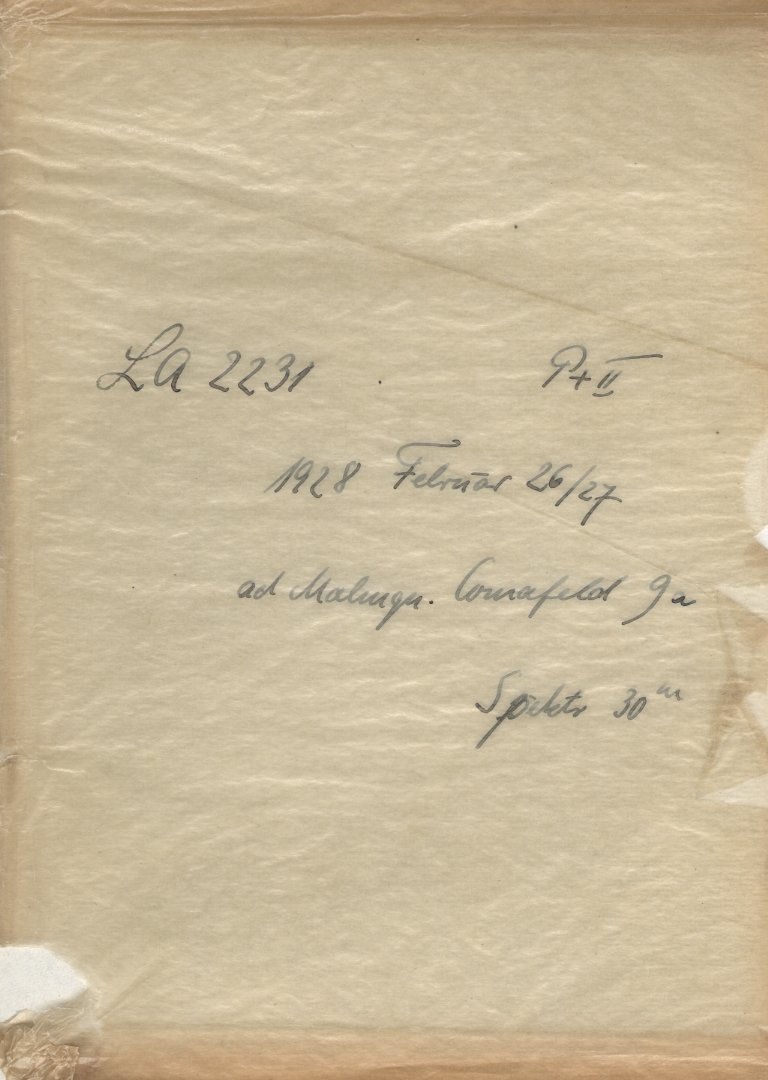 LA 2231 P+II
1928 Februar 26/27
ad Malmqu. Comafeld 9a
Spektr 30ᵐ